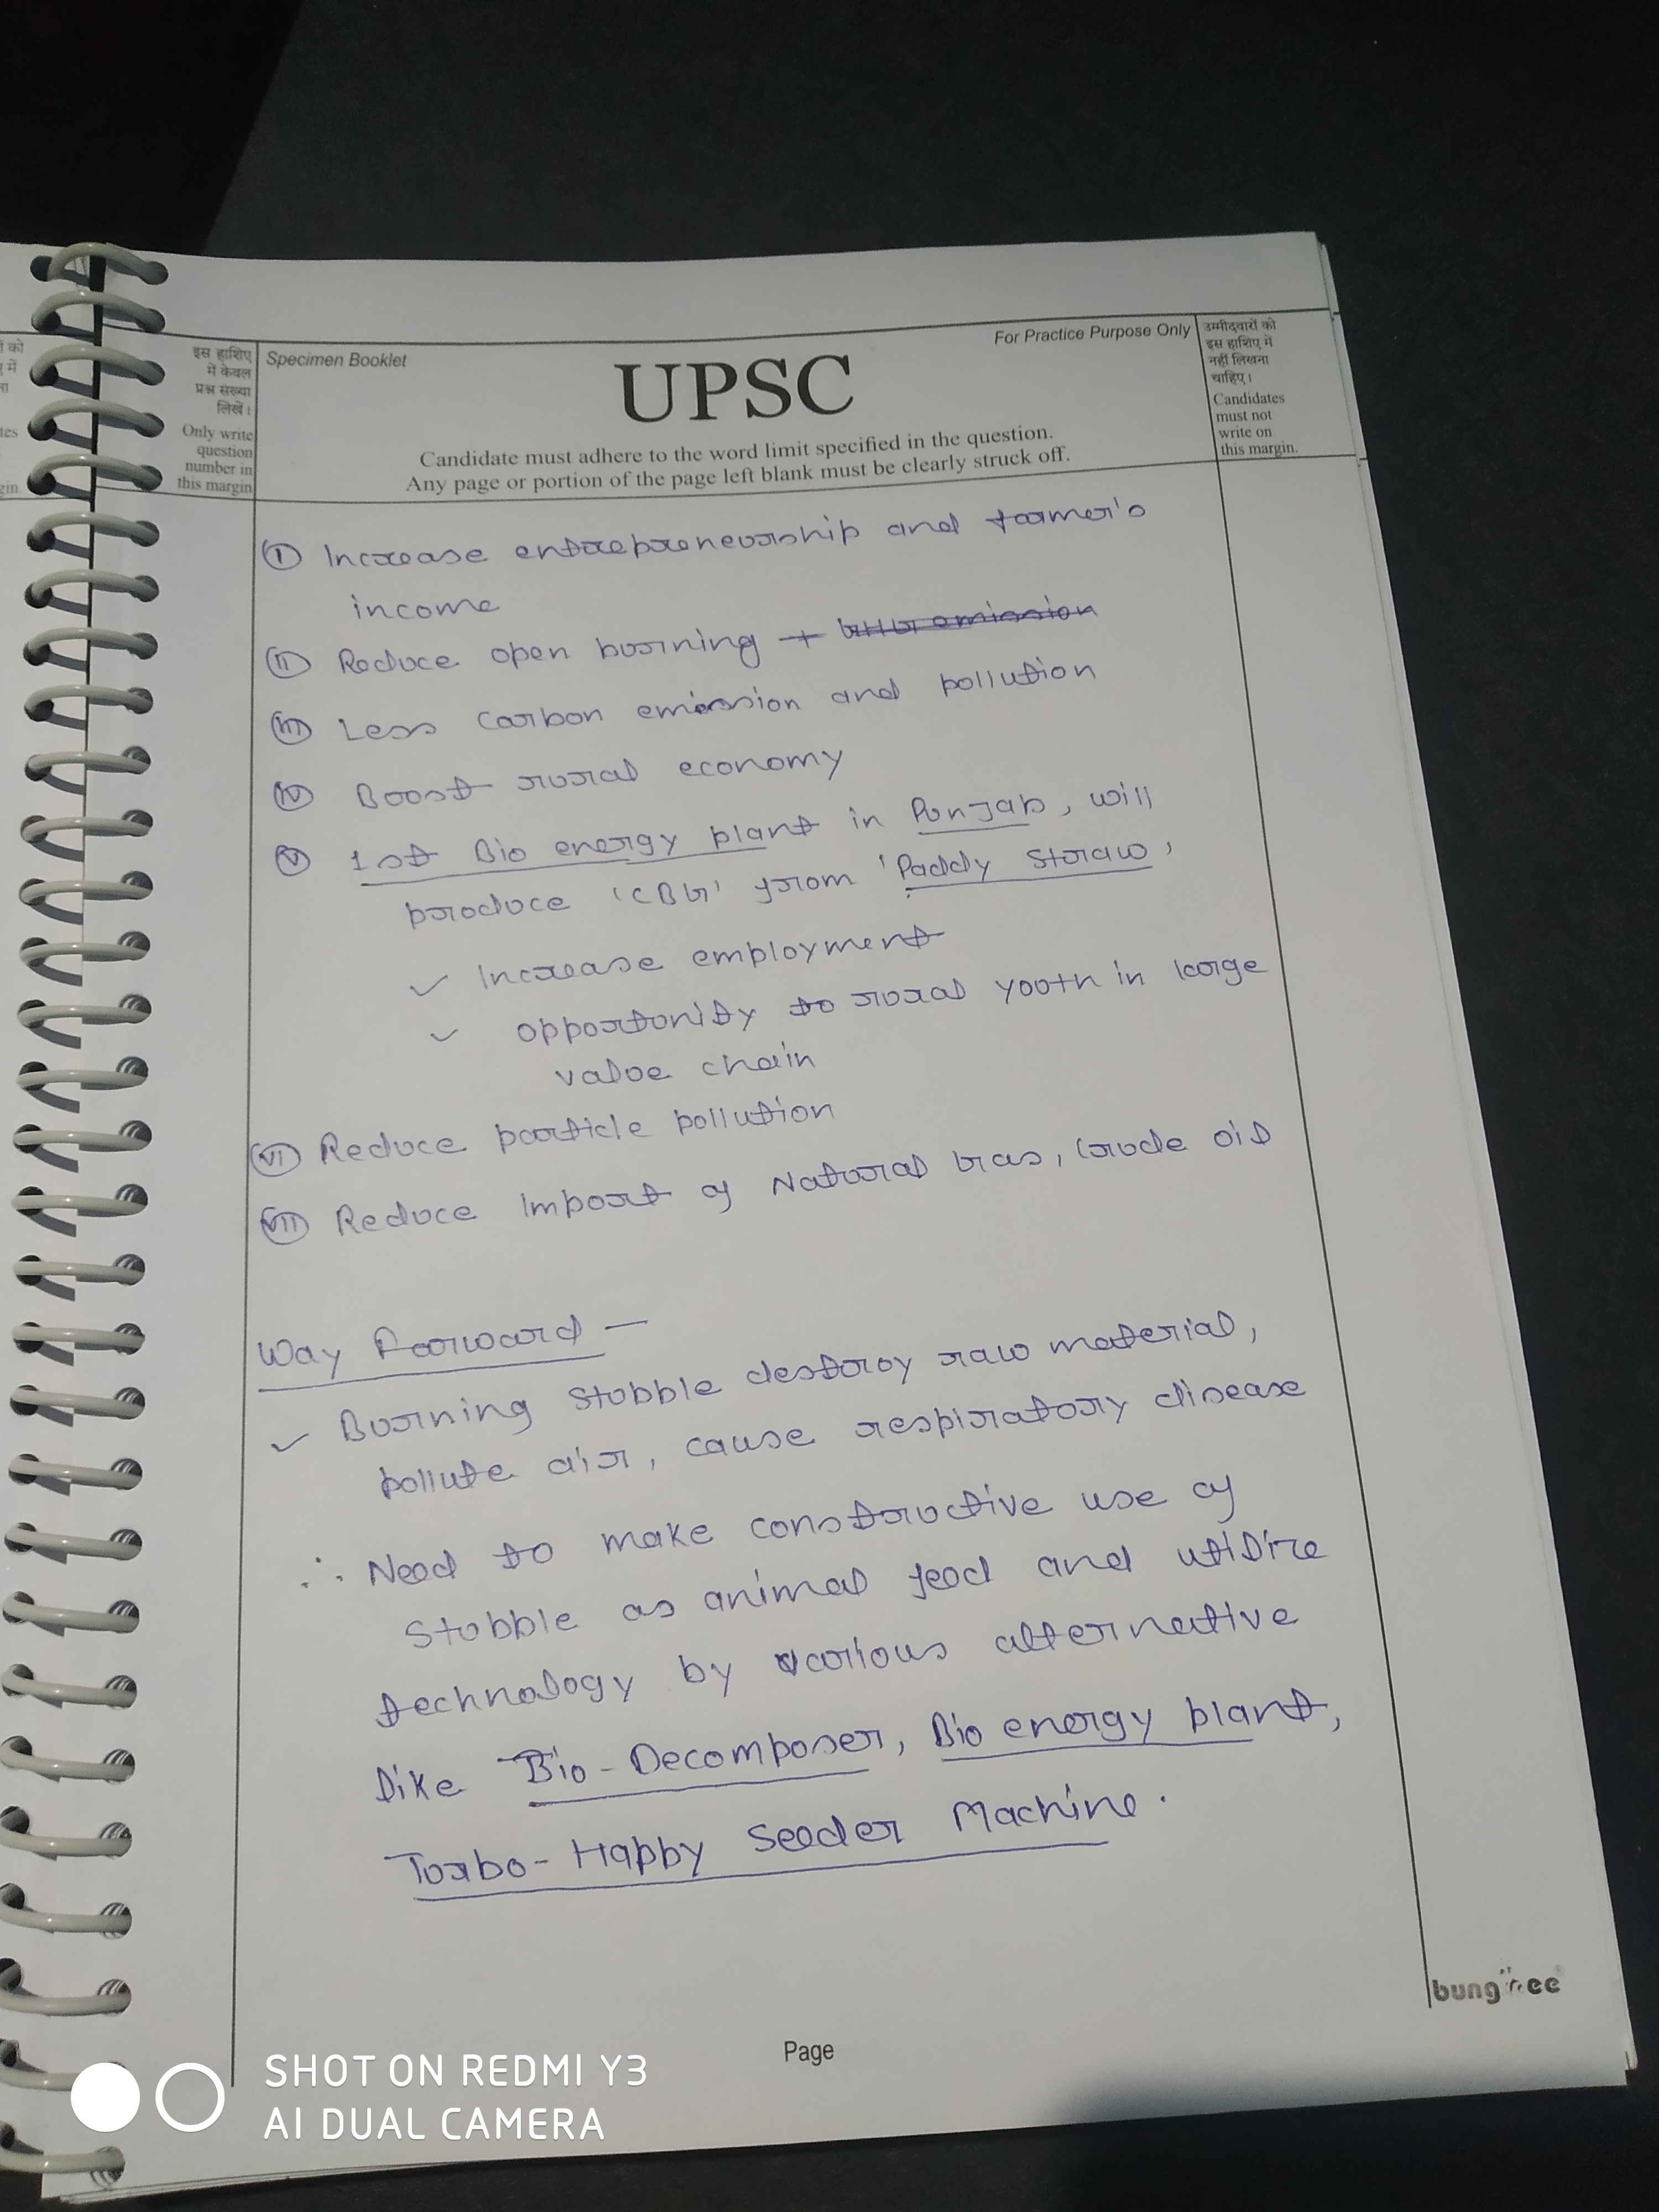 इस हाशिए
में केवल
प्रश्न संख्या
लिखें।
Only write
question
number in
this margin
Specimen Booklet
For Practice Purpose Only
UPSC
Candidate must adhere to the word limit specified in the question.
Any page or portion of the page left blank must be clearly struck off.
उम्मीदवारों को
इस हाशिए में
नहीं लिखना
चाहिए।
Candidates
must not
write on
this margin.
(I) Increase entrepreneurship and farmer's
income
(II) Reduce open burning + GHG emission
(III) Less carbon emission and pollution
(IV) Boost rural economy
(V) 1st Bio energy plant in Punjab, will
produce 'CBG' from 'Paddy Straw'
✓ Increase employment
✓ opportunity to rural youth in large
value chain
(VI) Reduce particle pollution
(VII) Reduce Import of Natural Gas, Crude oil
Way Forward —
✓ Burning stubble destroy raw material,
pollute air, cause respiratory disease
∴ Need to make constructive use of
stubble as animal feed and utilize
technology by various alternative
like Bio-Decomposer, Bio energy plant,
Turbo-Happy Seeder Machine.
Page
SHOT ON REDMI Y3
AI DUAL CAMERA